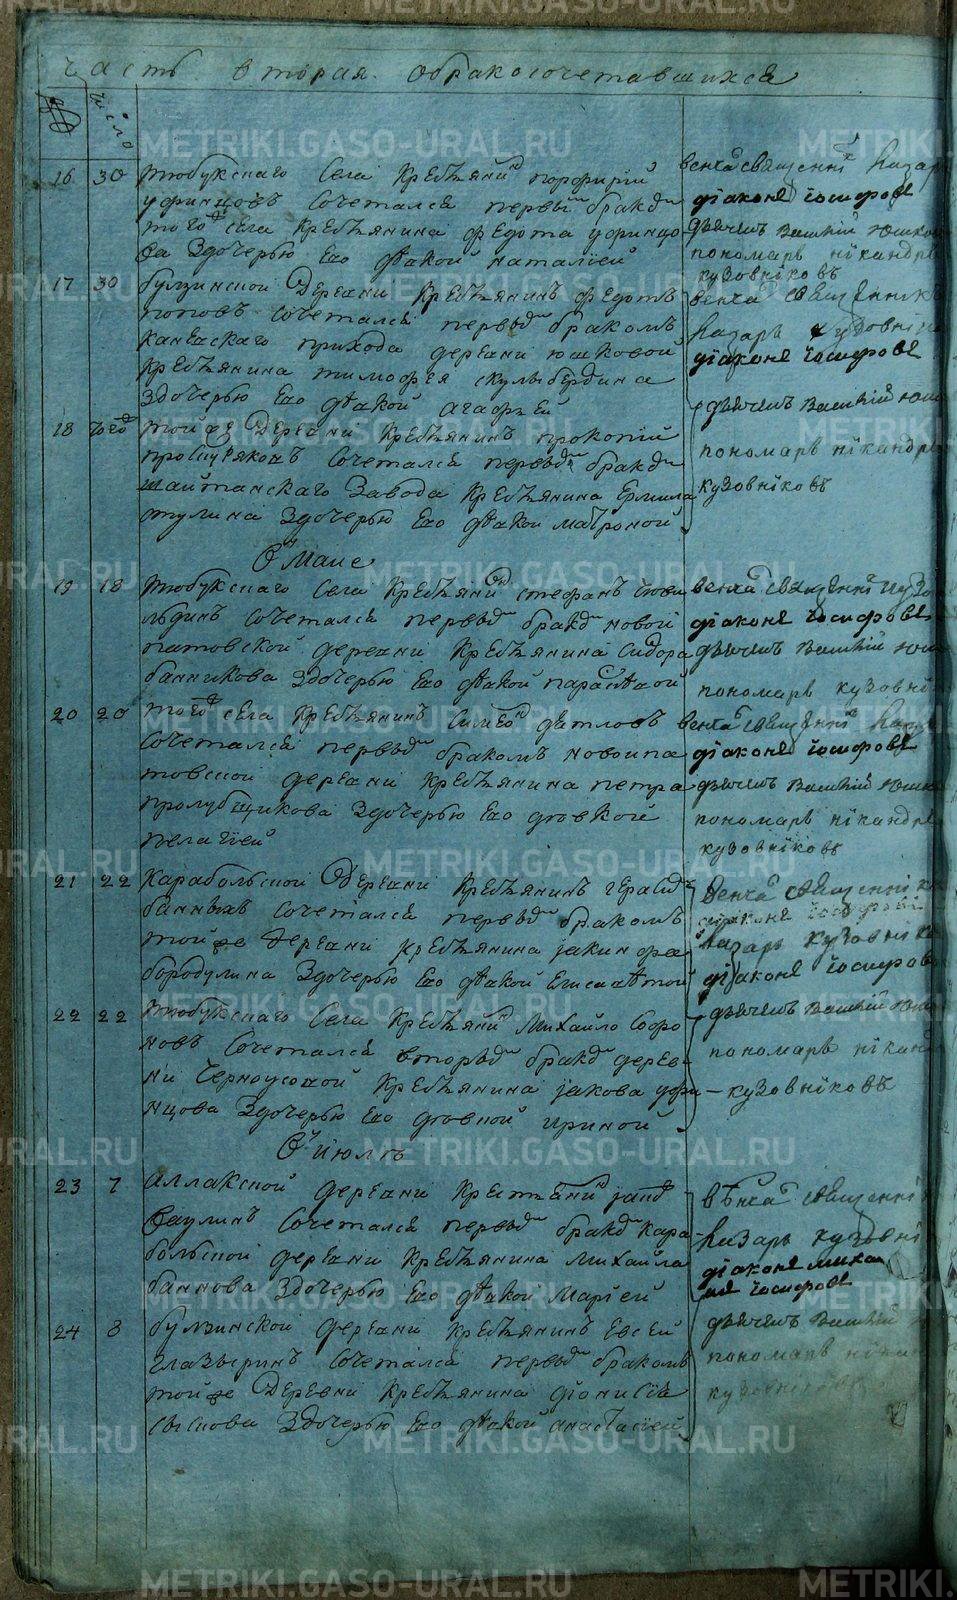 часть вторая о бракосочетавшихся
№ число
16 30 тюбукскаго села крестьянинъ порфирій
уфинцовъ сочетался первымъ бракомъ
того села крестьянина федота уфинцо
ва здочерью ево девкой наталіей
венча священни назарь
діаконъ іосифовъ
дьячекъ василій юшков
пономарь никандръ
кузовниковъ
17 30 булзинской деревни крестьянинъ федотъ
поповъ сочетался первымъ бракомъ
каневскаго прихода деревни юшковой
крестьянина тимофея
здочерью ево девкой агафьей
венча священникъ
назарь кузовнико
діаконъ іосифовъ
дьячекъ василій юш
18 того тойже деревни крестьянинъ прокопій
сочетался первымъ бракомъ
шайтанскаго завода крестьянина ермила
тулина здочерью ево девкой матроной
пономарь никандръ
кузовниковъ
в маие
19 18 тюбукскаго села крестьянинъ стефанъ
сочетался первымъ бракомъ новой
патовской деревни крестьянина сидора
банникова здочерью ево девкой парасковой
венча священни
діаконъ іосифовъ
дьячекъ василій юш
пономарь кузовни
20 20 того села крестьянинъ симеонъ дятловъ
сочетался первымъ бракомъ новоипа
товской деревни крестьянина петра
пролубщикова здочерью ево девкой
пелагіей
венча священни
діаконъ іосифовъ
дьячекъ василій юшк
пономарь никандръ
кузовниковъ
21 22 карабольской деревни крестьянинъ герасимъ
банныхъ сочетался первымъ бракомъ
тойже деревни крестьянина іакинфа
бородулина здочерью ево девкой елисаветой
венча священникъ
діаконъ іосифовъ
назарь кузовнико
діаконъ іосифовъ
22 22 тюбукскаго села крестьянинъ михайло софо
новъ сочетался вторымъ бракомъ дерев
ни черноусовой крестьянина іакова уфи
нцова здочерью ево девкой ириной
дьячекъ василій юш
пономарь никанд
кузовниковъ
в июле
23 7 аллакской деревни крестьянинъ
ваулинъ сочетался первымъ бракомъ кара
больской деревни крестьянина михайла
баннова здочерью ево девкой маріей
венча священни
назарь кузовни
діаконъ миха
илъ іосифовъ
24 8 булзинской деревни крестьянинъ евсей
глазыринъ сочетался первымъ бракомъ
тойже деревни крестьянина дионисія
сыснова здочерью ево девкой анастасіей
дьячекъ василій
пономарь никан
кузовниковъ
METRIKI.GASO-URAL.RU